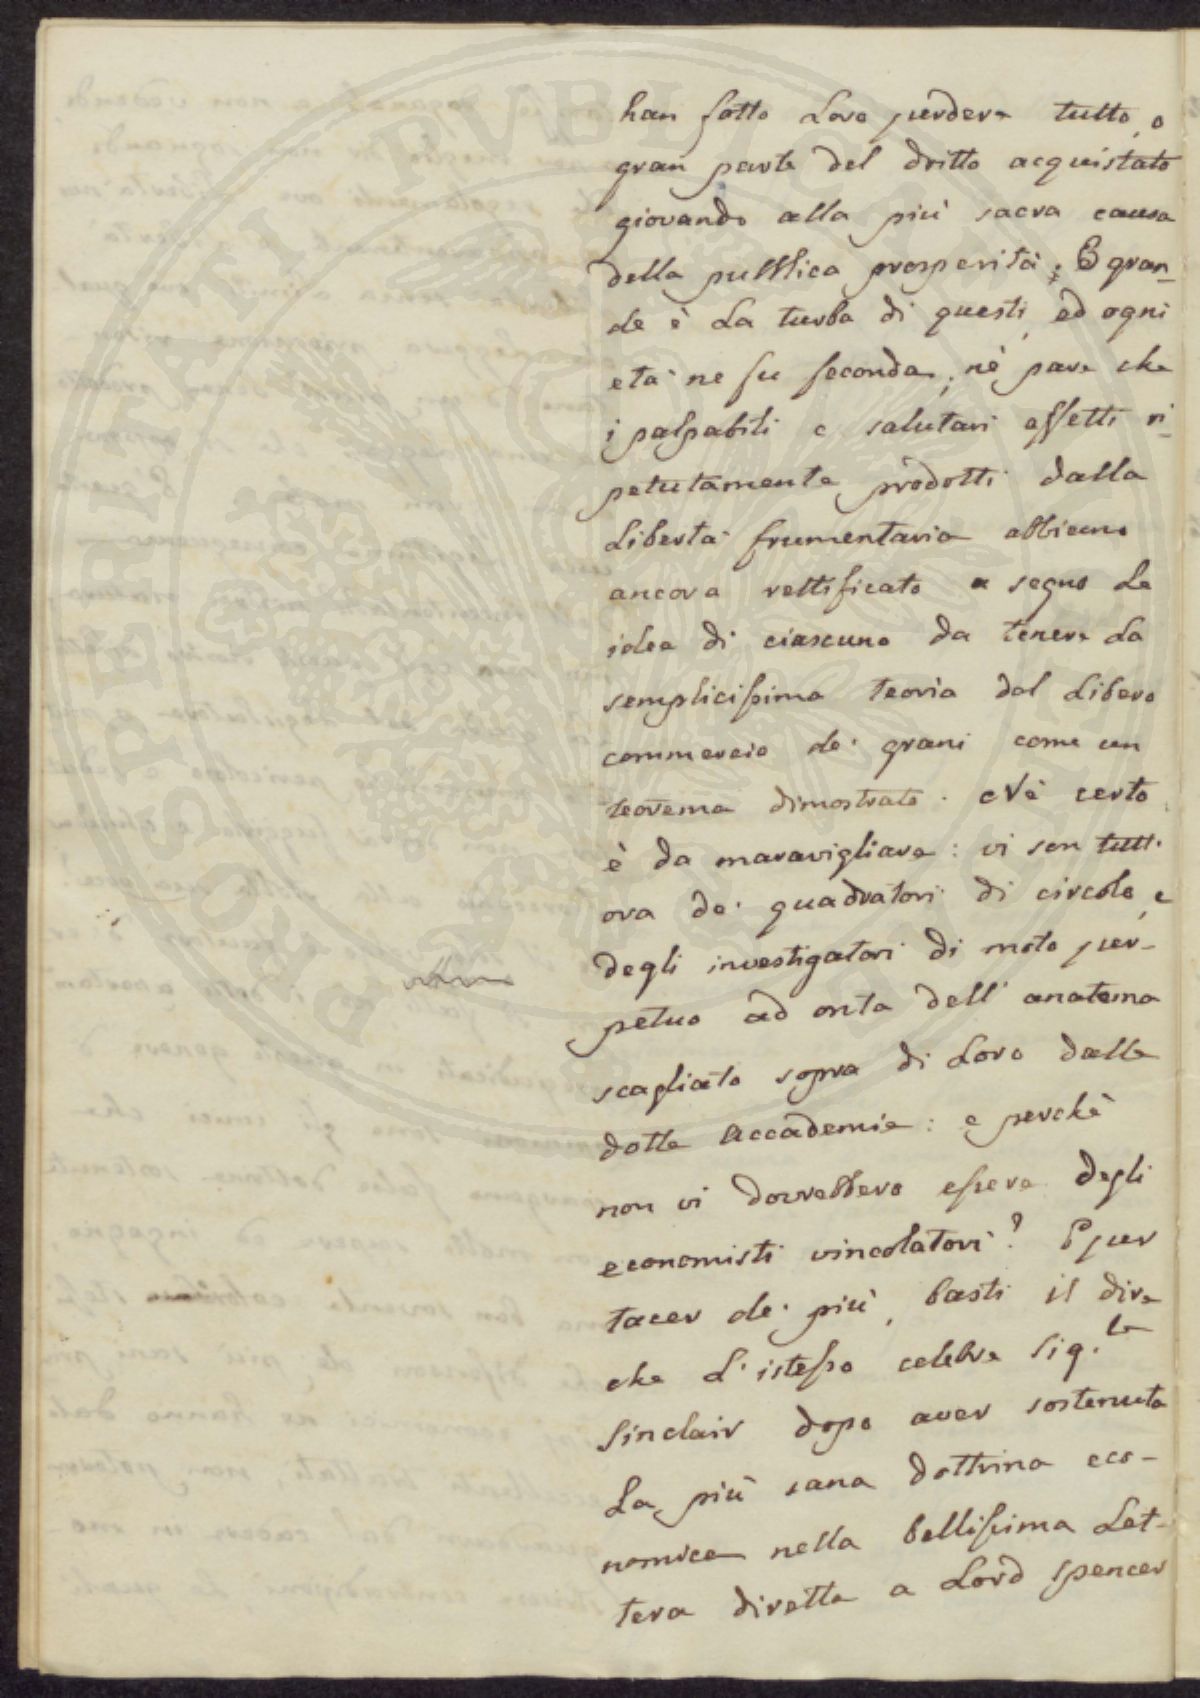 han fatto Loro perdere tutto, o
gran parte del dritto acquistato
giovando alla più sacra causa
della pubblica prosperità; E gran-
de è La turba di questi, ed ogni
età ne fu feconda; nè pare che
i palpabili e salutari effetti ri-
petutamente prodotti dalla
Libertà frumentaria abbiano
ancora rettificato a segno Le
idee di ciascuno da tenere La
semplicissima teoria del Libero
commercio de' grani come un
teorema dimostrato. Nè certo
è da maravigliare: vi son tutt'
ora de' quadratori di circolo, e
degli investigatori di moto per-
petuo ad onta dell' anatema
scagliato sopra di Loro dalle
dotte Accademie: e perchè
non vi dovrebbero essere degli
economisti vincolatori? E per
tacer de' più, basti il dire
che L'istesso celebre Sig.le
Sinclair dopo aver sostenuta
La più sana dottrina eco-
nomica nella bellissima Let-
tera diretta a Lord Spencer
PROSPERITATI PVBLICAE